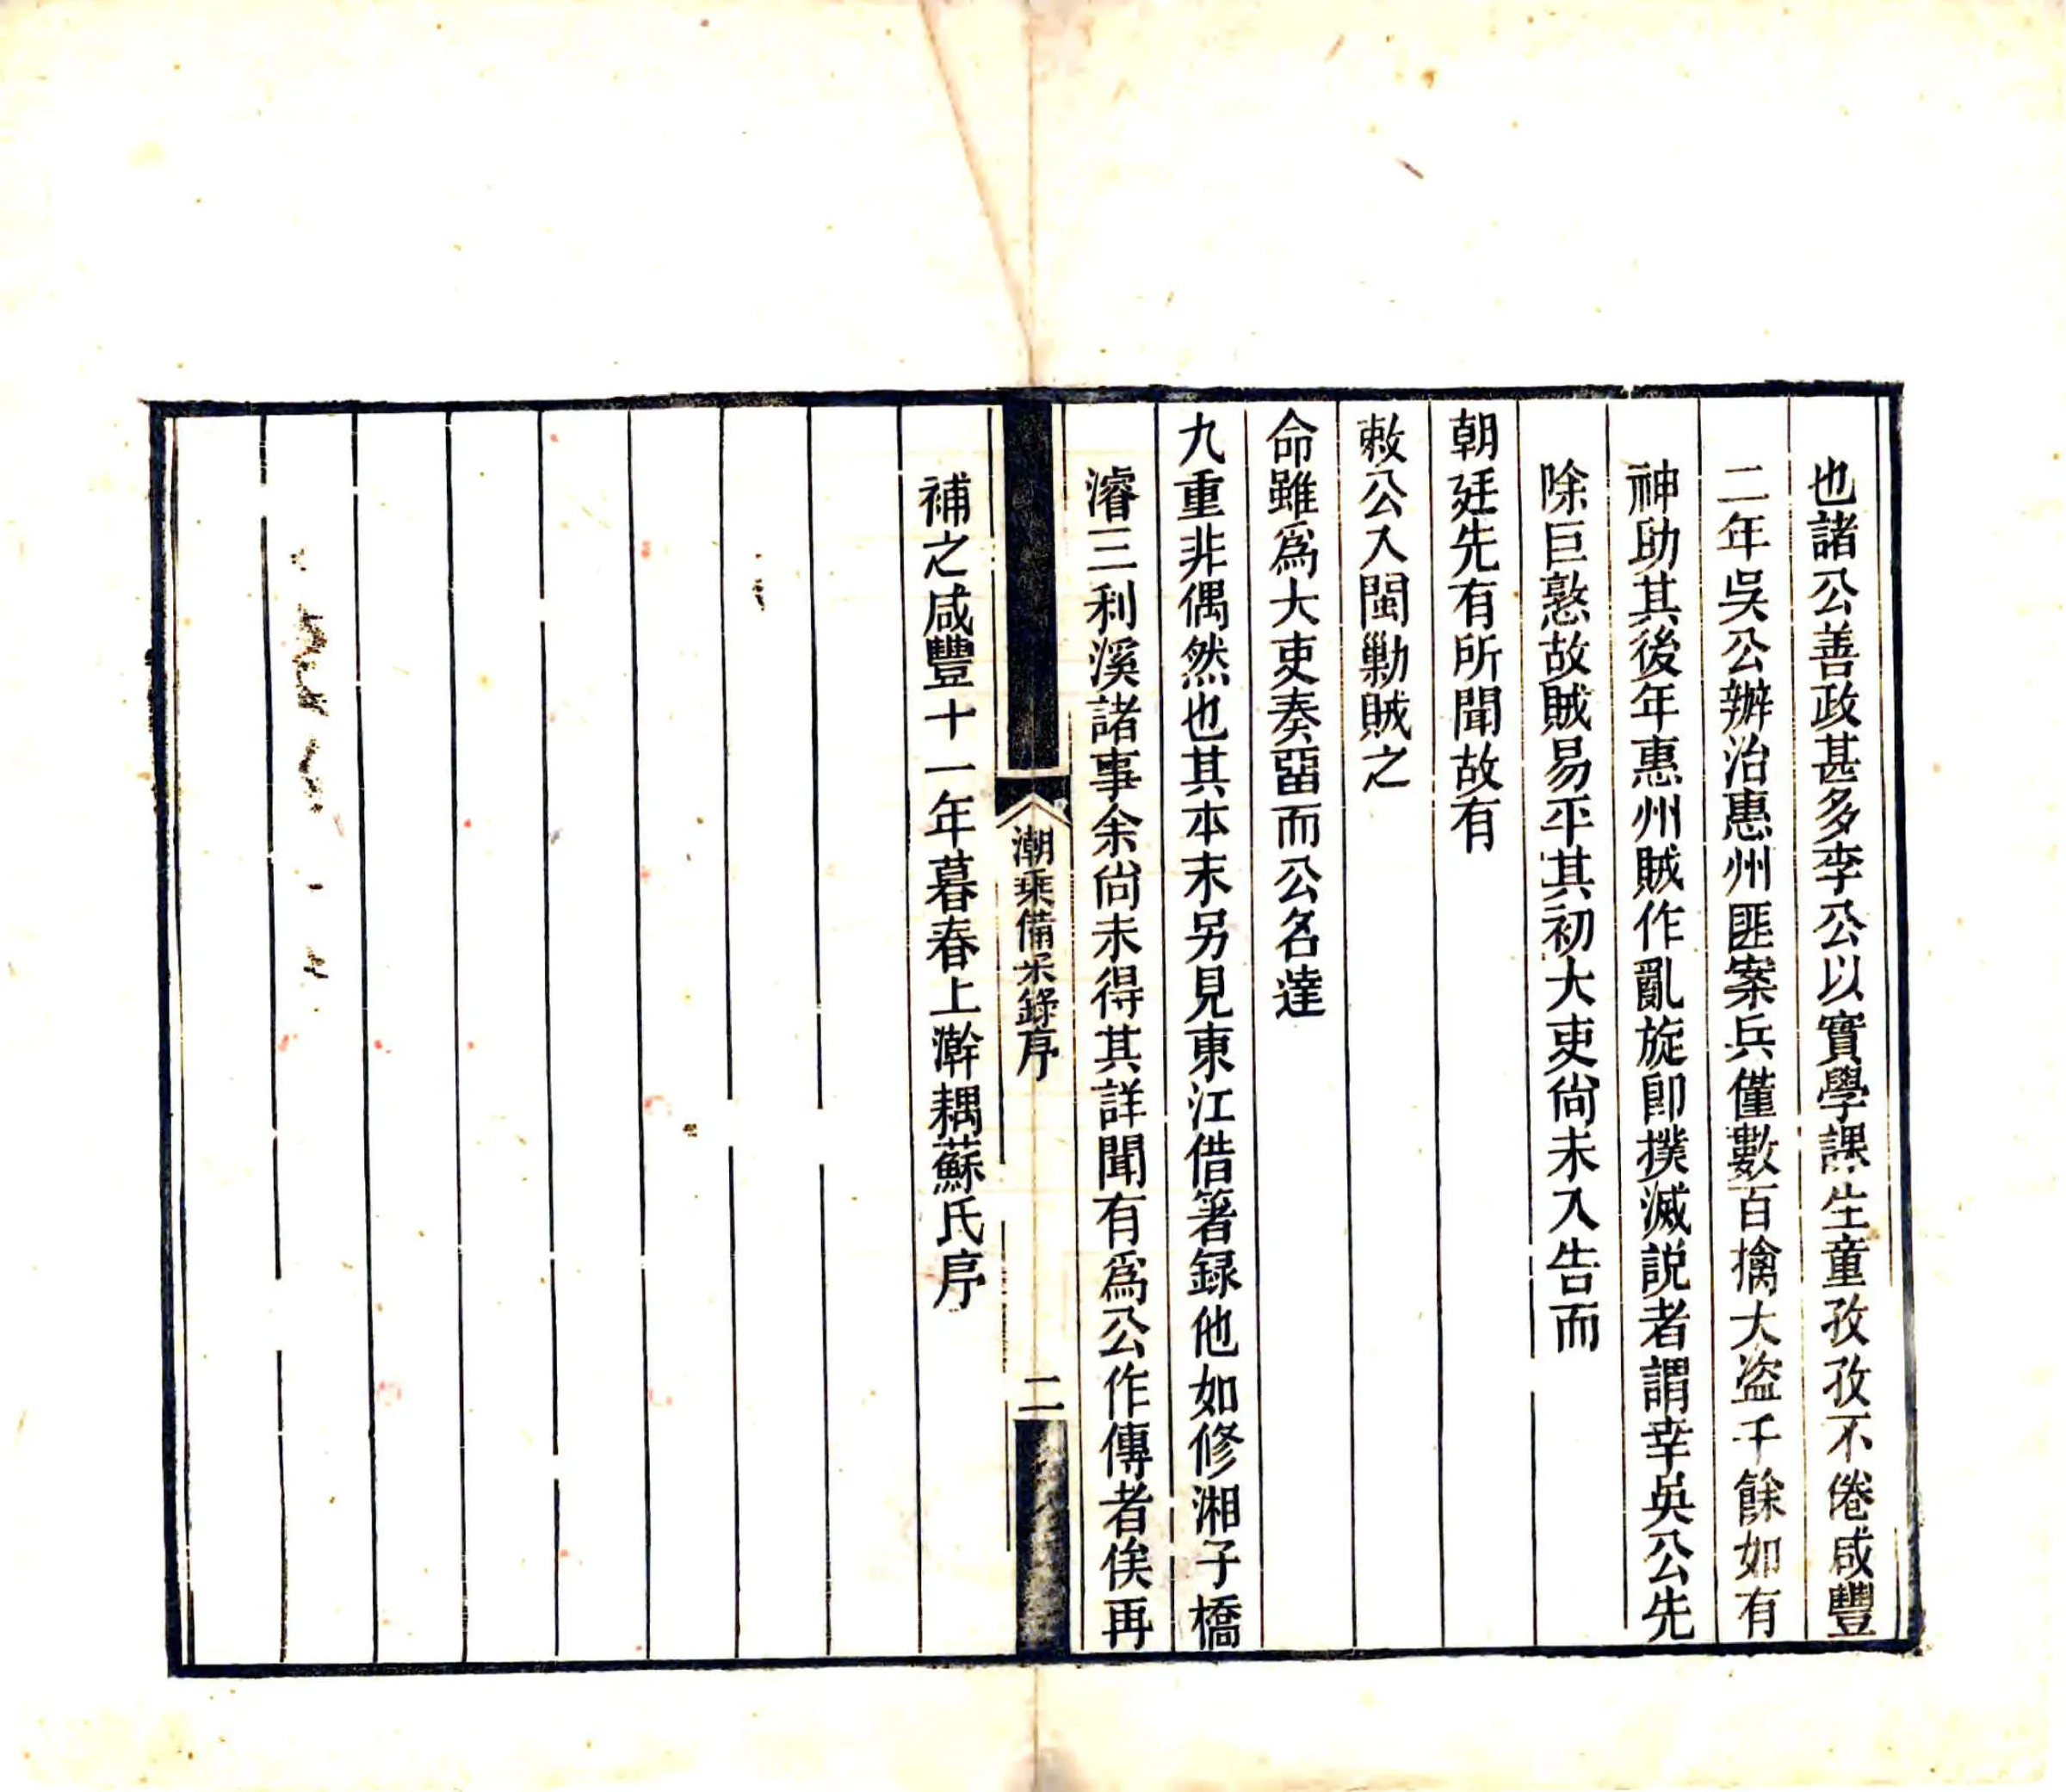 也諸公善政甚多李公以實學課生童孜孜不倦咸豐
二年吳公辦治惠州匪案兵僅數百擒大盗千餘如有
神助其後年惠州賊作亂旋卽撲滅説者謂幸吳公先
除巨憝故賊易平其初大吏尙未入告而
朝廷先有所聞故有
敕公入閩勦賊之
命雖爲大吏奏畱而公名達
九重非偶然也其本末另見東江借箸録他如修湘子橋
濬三利溪諸事余尙未得其詳聞有爲公作傳者俟再
潮乘備采錄序
二
補之咸豐十一年暮春上澣耦蘇氏序